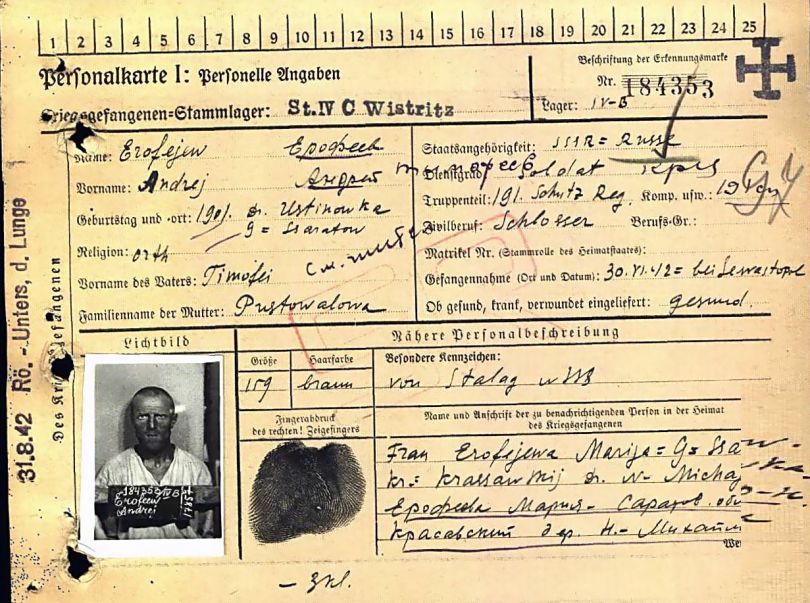 1 2 3 4 5 6 7 8 9 10 11 12 13 14 15 16 17 18 19 20 21 22 23 24 25
Personalkarte I: Personelle Angaben
Kriegsgefangenen-Stammlager: St.IV C Wistritz
Beschriftung der Erkennungsmarke
Nr. 184353
Lager: IV-B
Des Kriegsgefangenen
Name: Erofejew Ерофеев
Vorname: Andrej Андрей Тимофеев
Geburtstag und -ort: 1901. D. Ustinowka
G = Ssaratow
Religion: orth
Vorname des Vaters: Timofei
Familienname der Mutter: Pustowalowa
Staatsangehörigkeit: SSSR = Russe
Dienstgrad: Soldat
Truppenteil: 191. Schutz Reg. Komp. usw.:
Zivilberuf: Schlosser Berufs-Gr.:
Matrikel Nr. (Stammrolle des Heimatstaates):
Gefangennahme (Ort und Datum): 30.VI.42 = bei Sewastopol
Ob gesund, krank, verwundet eingeliefert: gesund.
31.8.42 Rö.-Unters, d. Lunge
Lichtbild
Nähere Personalbeschreibung
Größe Haarfarbe
159 braun
Besondere Kennzeichen:
von Stalag
Fingerabdruck
des rechten! Zeigefingers
Name und Anschrift der zu benachrichtigenden Person in der Heimat
des Kriegsgefangenen
Frau Erofejewa Marija = G = Ssa
Kr = Krassawskij D. N- Michaj
Ерофеева Мария - Саратов. об
Красавский дер. Н.- Михайл
184353 IV B
Erofeew
Andrei
17857